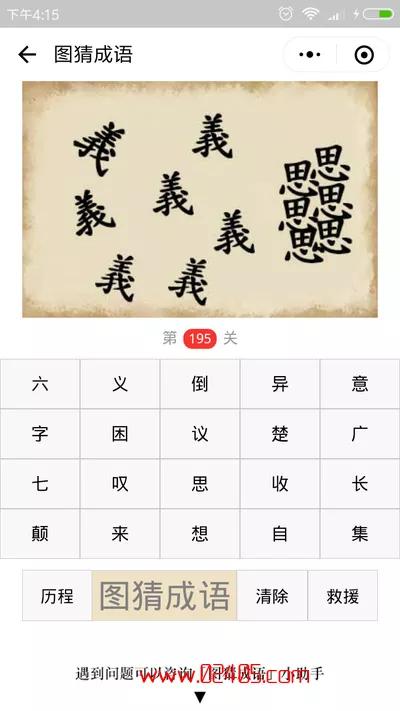 下午4:15
图猜成语
義 義
義 義 義
義 義
思 思
思 思
思 思
第 195 关
六 义 倒 异 意
字 困 议 楚 广
七 叹 思 收 长
颠 来 想 自 集
历程 图猜成语 清除 救援
遇到问题可以咨询 图猜成语 小助手
www.02405.com